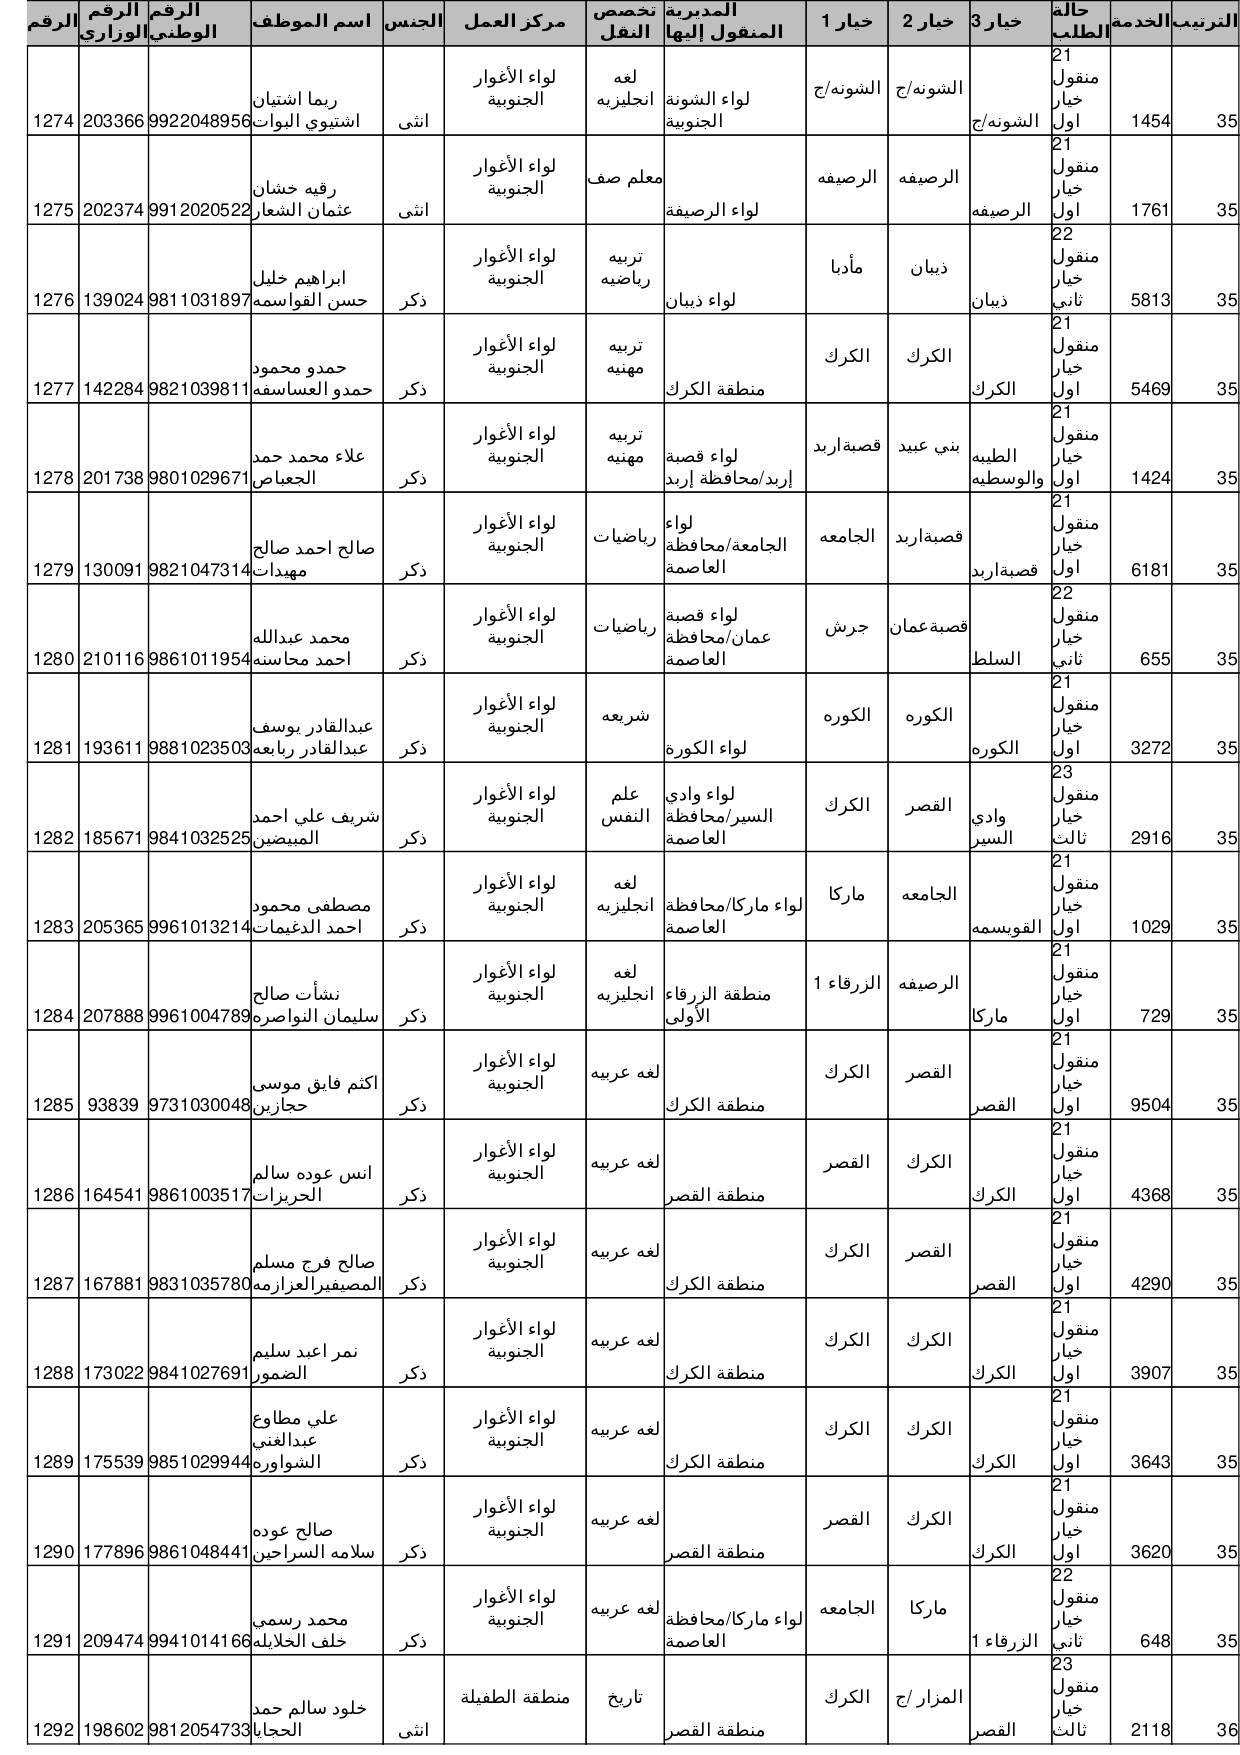 الرقم الرقم الوزاري الرقم الوطني اسم الموظف الجنس مركز العمل تخصص النقل المديرية المنقول إليها خيار 1 خيار 2 خيار 3 حالة الطلب الخدمة الترتيب
1274 203366 9922048956 ريما اشتيان اشتيوي البوات انثى لواء الأغوار الجنوبية لغه انجليزيه لواء الشونة الجنوبية الشونه/ج الشونه/ج الشونه/ج 21 منقول خيار اول 1454 35
1275 202374 9912020522 رقيه خشان عثمان الشعار انثى لواء الأغوار الجنوبية معلم صف لواء الرصيفة الرصيفه الرصيفه الرصيفه 21 منقول خيار اول 1761 35
1276 139024 9811031897 ابراهيم خليل حسن القواسمه ذكر لواء الأغوار الجنوبية تربيه رياضيه لواء ذيبان مأدبا ذيبان ذيبان 22 منقول خيار ثاني 5813 35
1277 142284 9821039811 حمدو محمود حمدو العساسفه ذكر لواء الأغوار الجنوبية تربيه مهنيه منطقة الكرك الكرك الكرك الكرك 21 منقول خيار اول 5469 35
1278 201738 9801029671 علاء محمد حمد الجعباص ذكر لواء الأغوار الجنوبية تربيه مهنيه لواء قصبة إربد/محافظة إربد قصبةاربد بني عبيد الطيبه والوسطيه 21 منقول خيار اول 1424 35
1279 130091 9821047314 صالح احمد صالح مهيدات ذكر لواء الأغوار الجنوبية رياضيات لواء الجامعة/محافظة العاصمة الجامعه قصبةاربد قصبةاربد 21 منقول خيار اول 6181 35
1280 210116 9861011954 محمد عبدالله احمد محاسنه ذكر لواء الأغوار الجنوبية رياضيات لواء قصبة عمان/محافظة العاصمة جرش قصبةعمان السلط 22 منقول خيار ثاني 655 35
1281 193611 9881023503 عبدالقادر يوسف عبدالقادر ربابعه ذكر لواء الأغوار الجنوبية شريعه لواء الكورة الكوره الكوره الكوره 21 منقول خيار اول 3272 35
1282 185671 9841032525 شريف علي احمد المبيضين ذكر لواء الأغوار الجنوبية علم النفس لواء وادي السير/محافظة العاصمة الكرك القصر وادي السير 23 منقول خيار ثالث 2916 35
1283 205365 9961013214 مصطفى محمود احمد الدغيمات ذكر لواء الأغوار الجنوبية لغه انجليزيه لواء ماركا/محافظة العاصمة ماركا الجامعه القويسمه 21 منقول خيار اول 1029 35
1284 207888 9961004789 نشأت صالح سليمان النواصره ذكر لواء الأغوار الجنوبية لغه انجليزيه منطقة الزرقاء الأولى الزرقاء 1 الرصيفه ماركا 21 منقول خيار اول 729 35
1285 93839 9731030048 اكثم فايق موسى حجازين ذكر لواء الأغوار الجنوبية لغه عربيه منطقة الكرك الكرك القصر القصر 21 منقول خيار اول 9504 35
1286 164541 9861003517 انس عوده سالم الحريزات ذكر لواء الأغوار الجنوبية لغه عربيه منطقة القصر القصر الكرك الكرك 21 منقول خيار اول 4368 35
1287 167881 9831035780 صالح فرج مسلم المصيفيرالعزازمه ذكر لواء الأغوار الجنوبية لغه عربيه منطقة الكرك الكرك القصر القصر 21 منقول خيار اول 4290 35
1288 173022 9841027691 نمر اعبد سليم الضمور ذكر لواء الأغوار الجنوبية لغه عربيه منطقة الكرك الكرك الكرك الكرك 21 منقول خيار اول 3907 35
1289 175539 9851029944 علي مطاوع عبدالغني الشواوره ذكر لواء الأغوار الجنوبية لغه عربيه منطقة الكرك الكرك الكرك الكرك 21 منقول خيار اول 3643 35
1290 177896 9861048441 صالح عوده سلامه السراحين ذكر لواء الأغوار الجنوبية لغه عربيه منطقة القصر القصر الكرك الكرك 21 منقول خيار اول 3620 35
1291 209474 9941014166 محمد رسمي خلف الخلايله ذكر لواء الأغوار الجنوبية لغه عربيه لواء ماركا/محافظة العاصمة الجامعه ماركا الزرقاء 1 22 منقول خيار ثاني 648 35
1292 198602 9812054733 خلود سالم حمد الحجايا انثى منطقة الطفيلة تاريخ منطقة القصر الكرك المزار /ج القصر 23 منقول خيار ثالث 2118 36